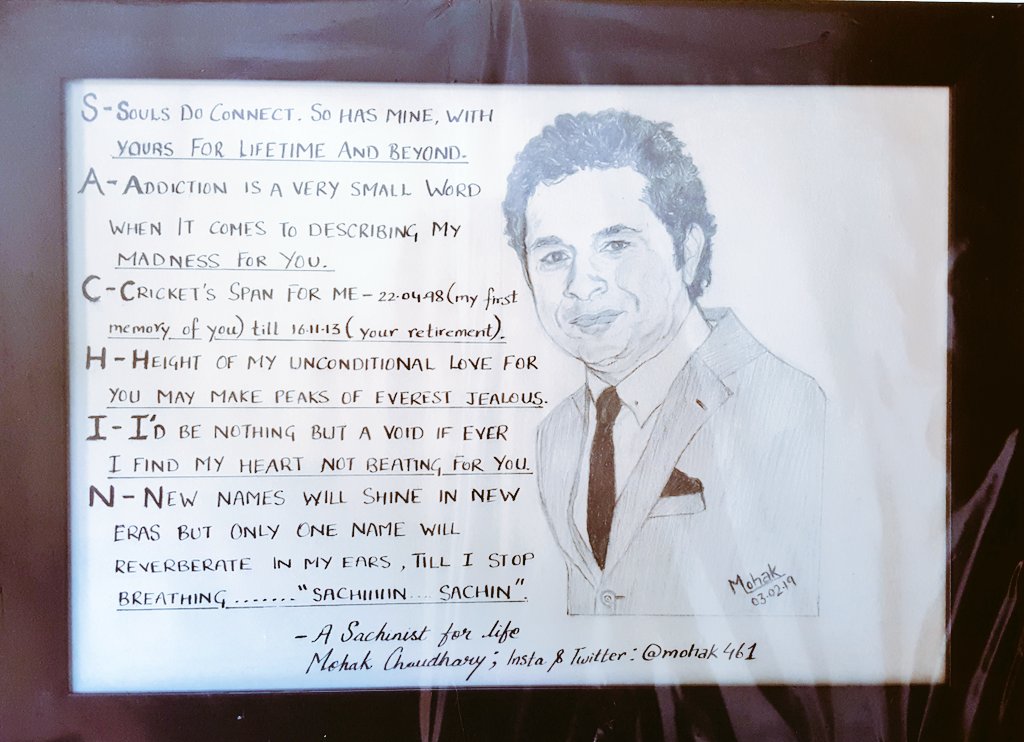 S-SOULS DO CONNECT. SO HAS MINE, WITH
YOURS FOR LIFETIME AND BEYOND.
A-ADDICTION IS A VERY SMALL WORD
WHEN IT COMES TO DESCRIBING MY
MADNESS FOR YOU.
C-CRICKET'S SPAN FOR ME-22.04.98(my first
memory of you) till 16.11.13(your retirement).
H-HEIGHT OF MY UNCONDITIONAL LOVE FOR
YOU MAY MAKE PEAKS OF EVEREST JEALOUS.
I-I'D BE NOTHING BUT A VOID IF EVER
I FIND MY HEART NOT BEATING FOR YOU.
N-NEW NAMES WILL SHINE IN NEW
ERAS BUT ONLY ONE NAME WILL
REVERBERATE IN MY EARS, TILL I STOP
BREATHING......."SACHIIIIIN.... SACHIN".
-A Sachinist for life
Mohak Chaudhary; Insta & Twitter: @mohak461
Mohak
03-02-19